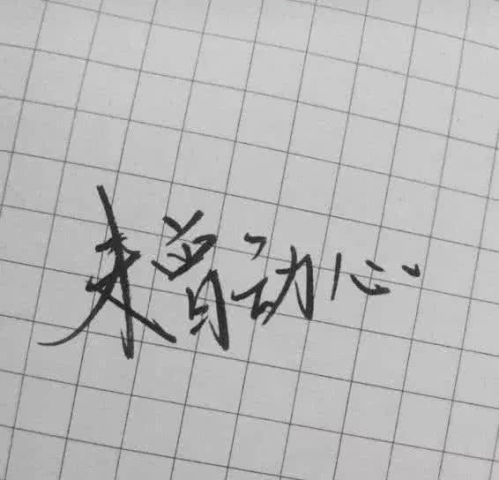 未曾动心